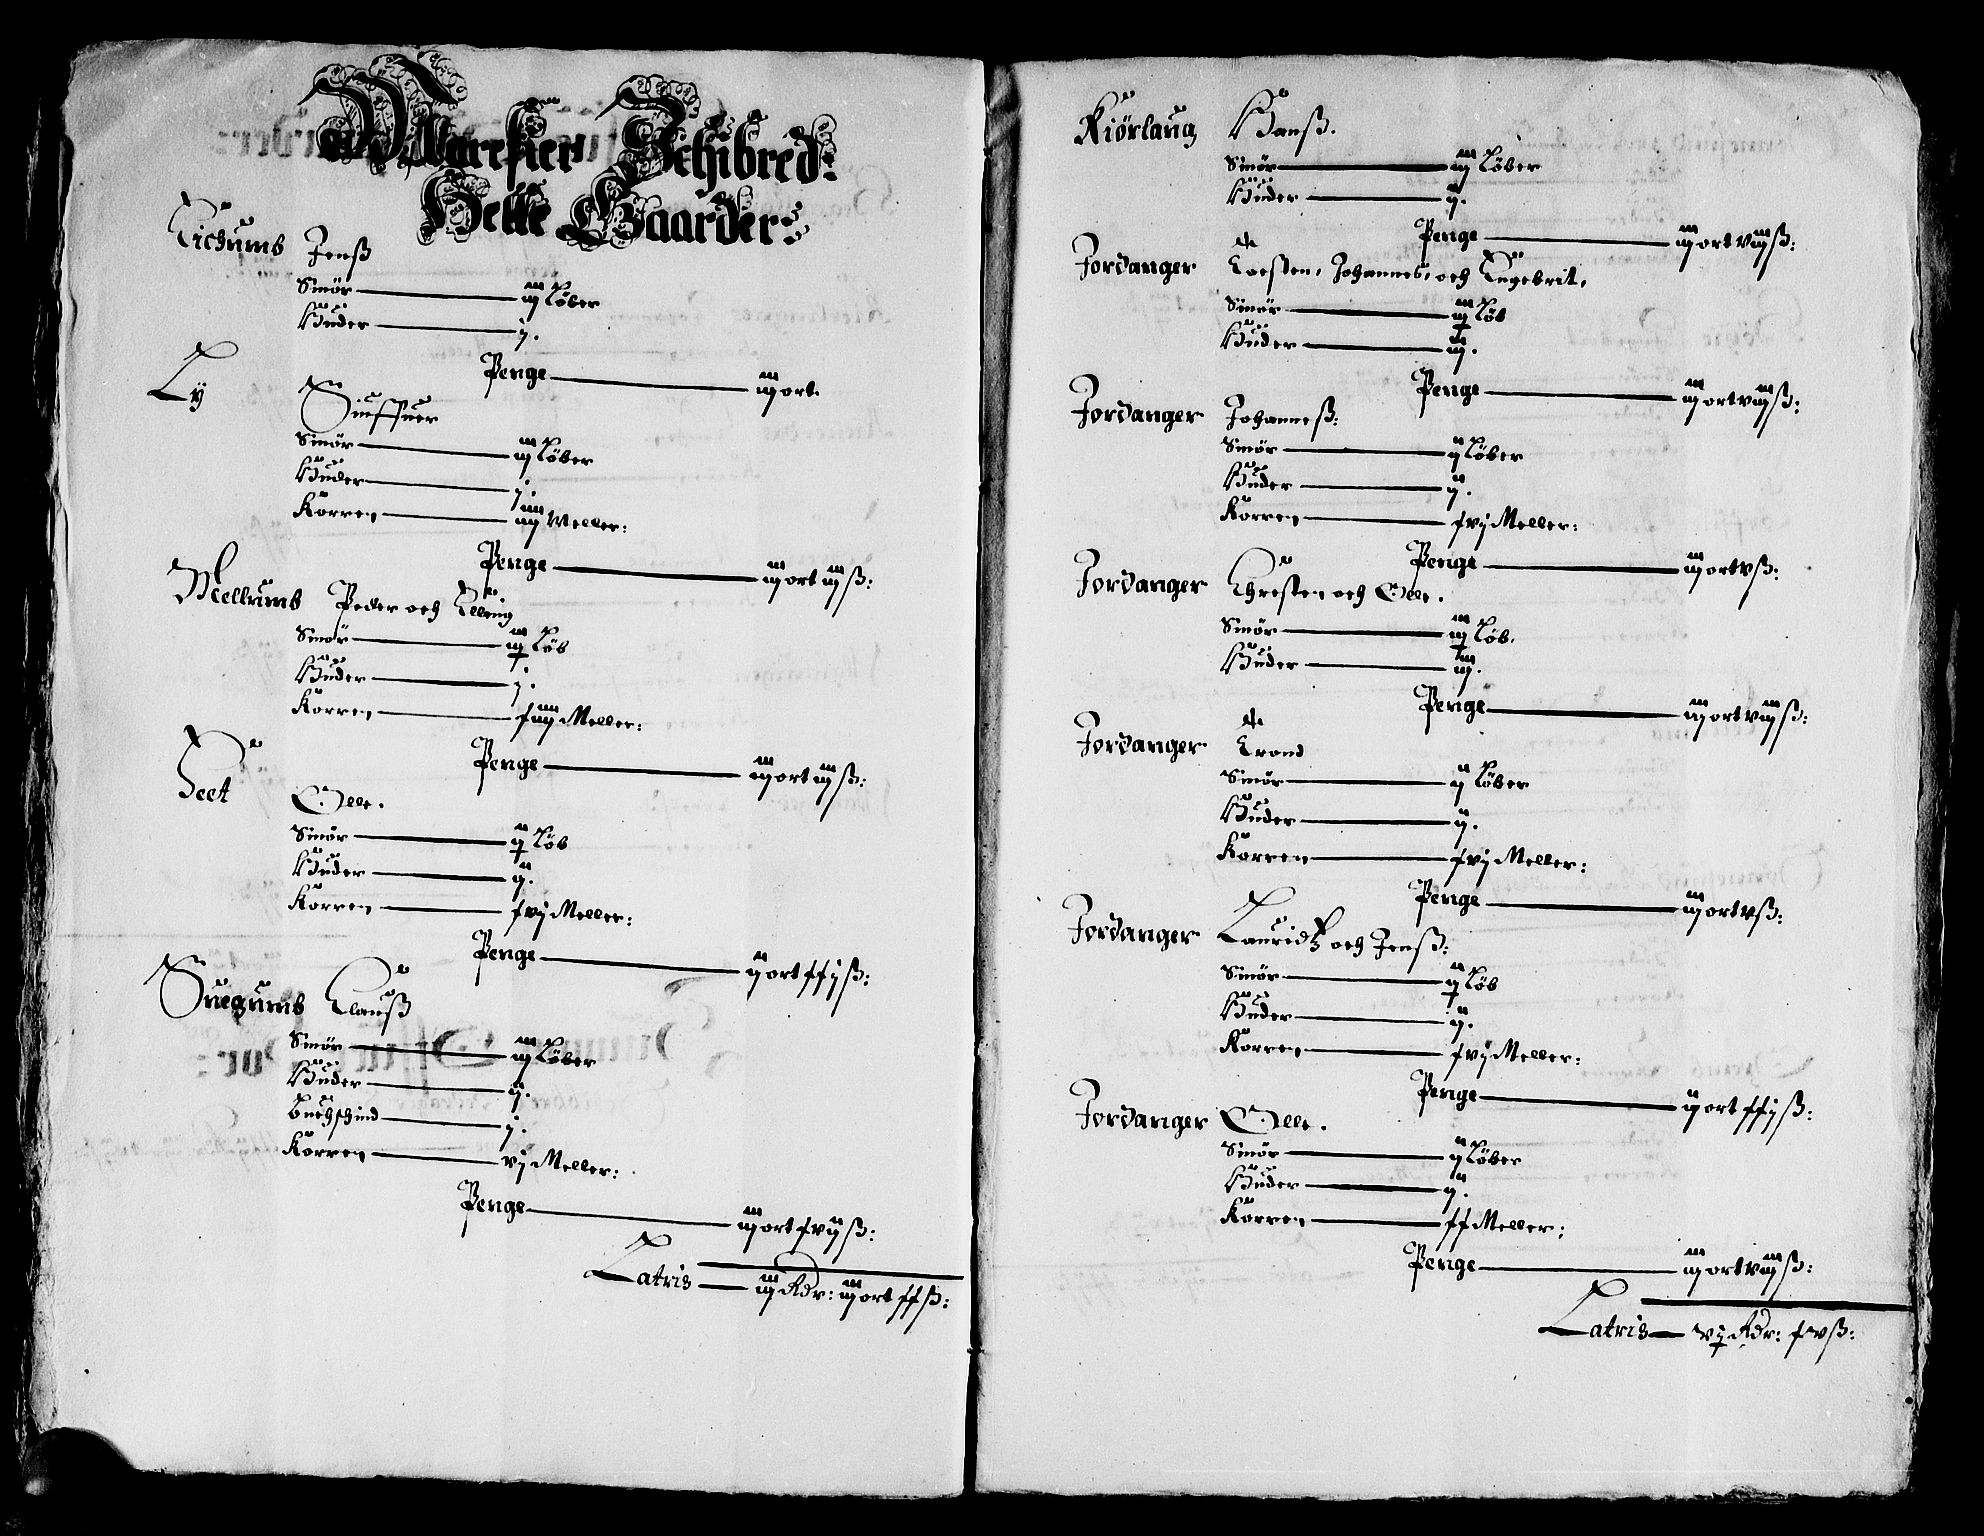 Marefier Schibred:
Helle Gaarder:
Jenß
Smör — iij Löber
Huder — j.
Penge — iij ort.
Ly
Siuffuer
Smör — iij Löber
Huder — j.
Korren — iiij Meller:
Penge — iij ort iij ß:
Mellrumb Peder och Elling
Smör — iij Löb
Huder — j.
Korren — xiiij Meller:
Penge — iij ort iij ß:
Olle.
Smör — ij Löb
Huder — ij.
Korren — xvj Meller:
Penge — ij ort xxj ß:
Clauß
Smör — iij Löber
Huder — ij.
Buchschind — j.
Korren — vj Meller:
Penge — iij ort xvij ß:
Latris — iij Rdr: iij ort xx ß:
Kiörlaug Hanß.
Smör — iij Löber
Huder — ij.
Penge — iij ort viij ß:
Jordanger Torsten, Johannes, och Engebrit,
Smör — iij Löb
Huder — iij.
Penge — iij ort viij ß:
Jordanger Johanneß:
Smör — ij Löber
Huder — ij.
Korren — xvj Meller:
Penge — iij ort v ß:
Jordanger Christen och Olle.
Smör — iij Löb.
Huder — iij.
Penge — iij ort viij ß:
Jordanger Trond
Smör — ij Löber
Huder — ij.
Korren — xvj Meller:
Penge — iij ort v ß:
Jordanger Lauridtz och Jenß:
Smör — ij Löb
Huder — ij.
Korren — xvj Meller:
Penge — ij ort xxj ß:
Jordanger Olle.
Smör — ij Löber
Huder — ij.
Korren — xx Meller:
Penge — iij ort viij ß:
Latris — vj Rdr: xv ß: